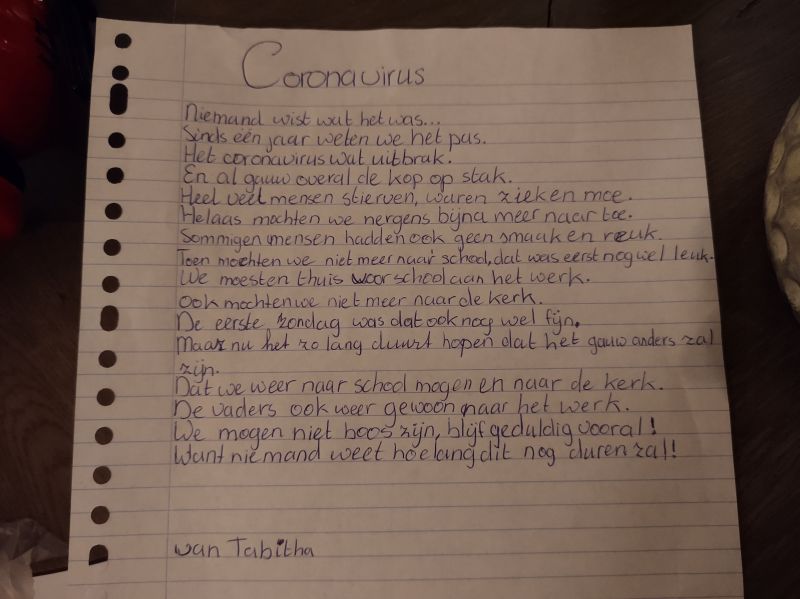 Coronavirus
Niemand wist wat het was...
Sinds één jaar weten we het pas.
Het coronavirus wat uitbrak.
En al gauw overal de kop op stak.
Heel veel mensen stierven, waren ziek en moe.
Helaas mochten we nergens bijna meer naar toe.
Sommigen mensen hadden ook geen smaak en reuk.
Toen mochten we niet meer naar school, dat was eerst nog wel leuk.
We moesten thuis voor school aan het werk.
Ook mochten we niet meer naar de kerk.
De eerste zondag was dat ook nog wel fijn.
Maar nu het zo lang duurt hopen dat het gauw anders zal
zijn.
Dat we weer naar school mogen en naar de kerk.
De vaders ook weer gewoon naar het werk.
We mogen niet boos zijn, blijf geduldig vooral!
Want niemand weet hoelang dit nog duren zal!
van Tabitha